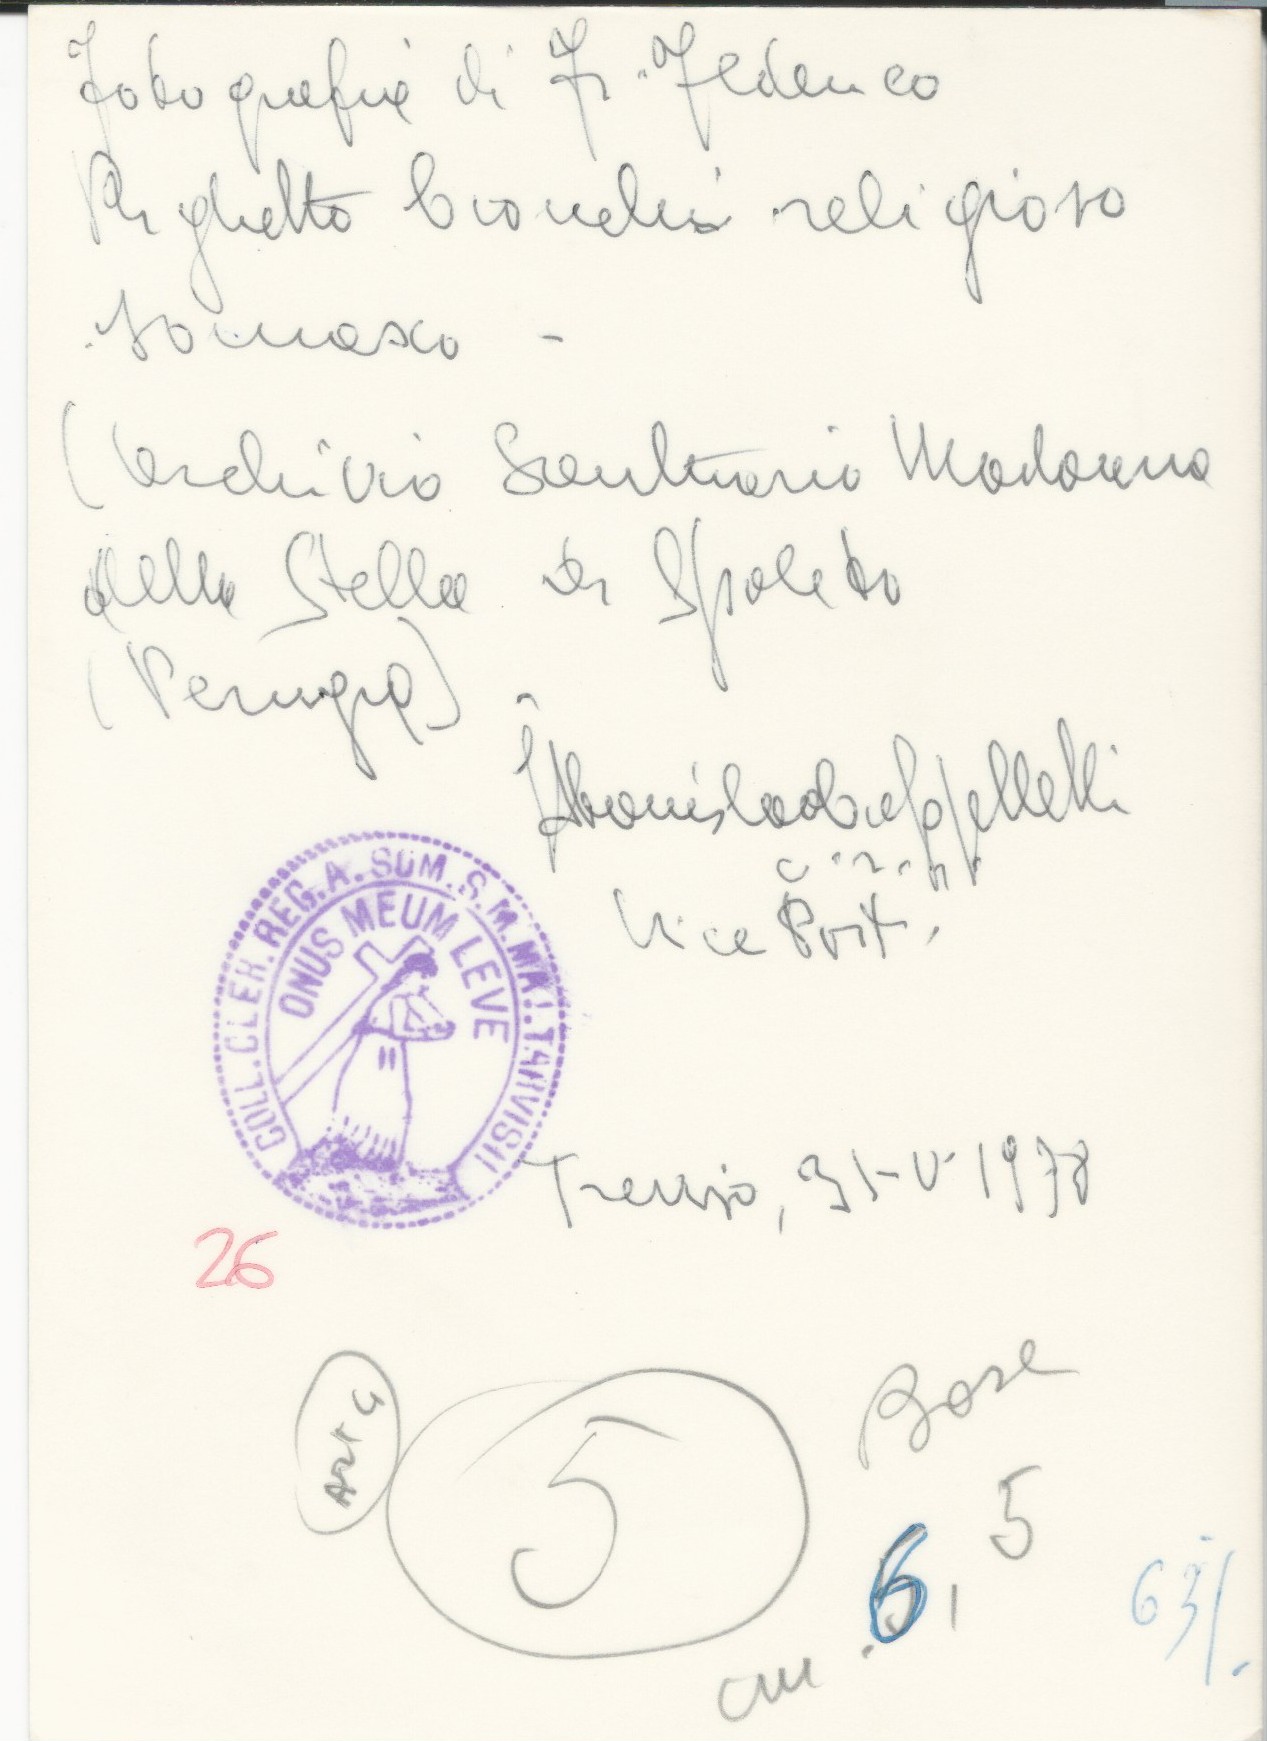 Fotografia di Fr. Federico
Righetto Cionchi religioso
somasco -
(archivio Santuario Madonna
della Stella di Spoleto
(Perugia) -
Stanislao Cappelletti
c. r. s.
Vice Post.
COLL. CLER. REG. A. SOM. S. M. MAJ. TARVISII
ONUS MEUM LEVE
Treviso, 31-V-1978
26
5
Base
cm. 6,5
63%